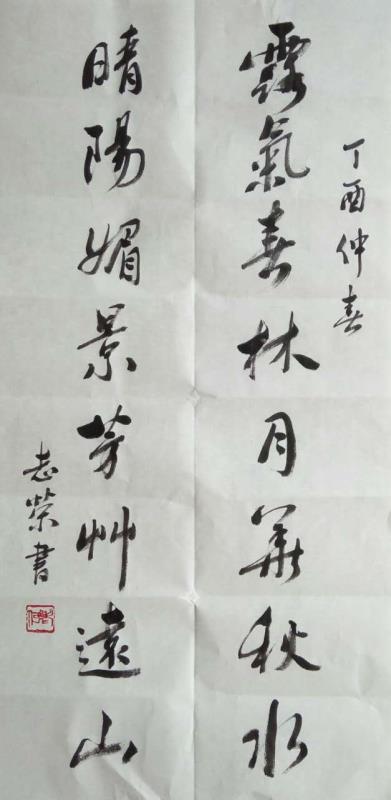 丁酉仲春
露氣春林月華秋水
晴陽媚景芳艸遠山
志榮書